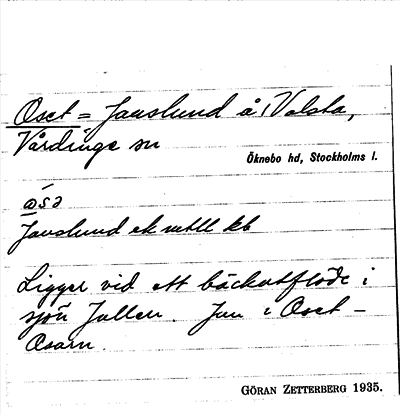 Oset = Janslund å, Valsta,
Vårdinge sn
Öknebo hd, Stockholms l.
Janslund ek
Ligger vid ett bäckutflöde i
sjön Jullen. Jan i Oset –
Osarn.
GÖRAN ZETTERBERG 1935.